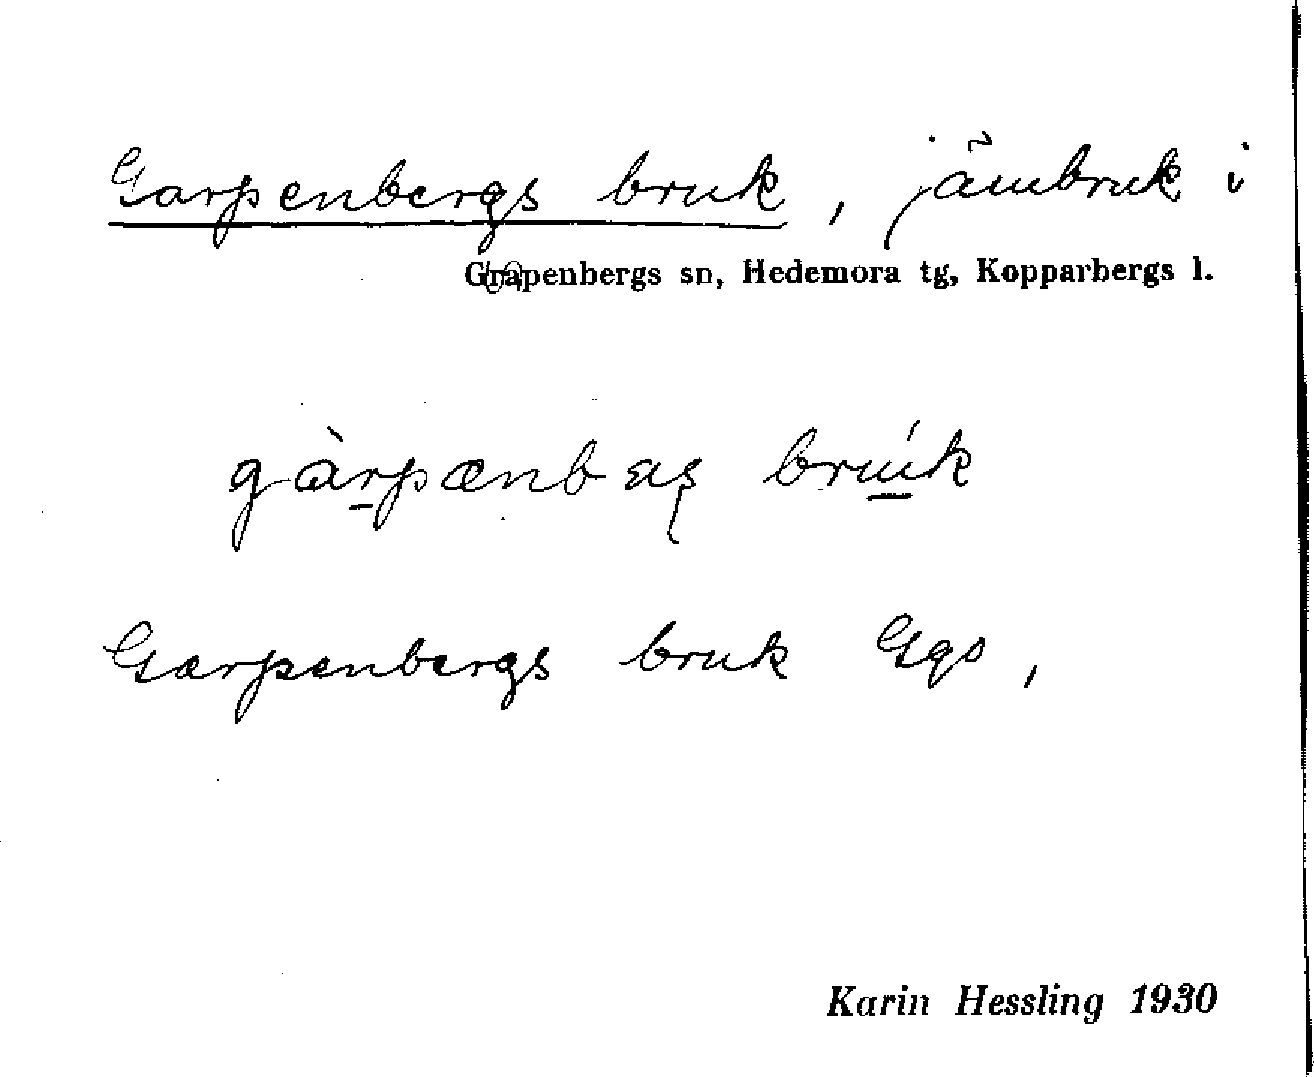 Garpenbergs bruk, järnbruk i
Grapenbergs sn, Hedemora tg, Kopparbergs l.
gàrpænbæş brúk
Garpenbergs bruk Ggs,
Karin Hessling 1930